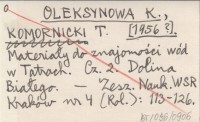 OLEKSYNOWA K.,
KOMORNICKI T. [1956?].
Materiały do znajomości wód
w Tatrach. Cz. 2. Dolina
Białego. — Zesz. Nauk. WSR
Kraków nr 4 (Rol.): 113-126.